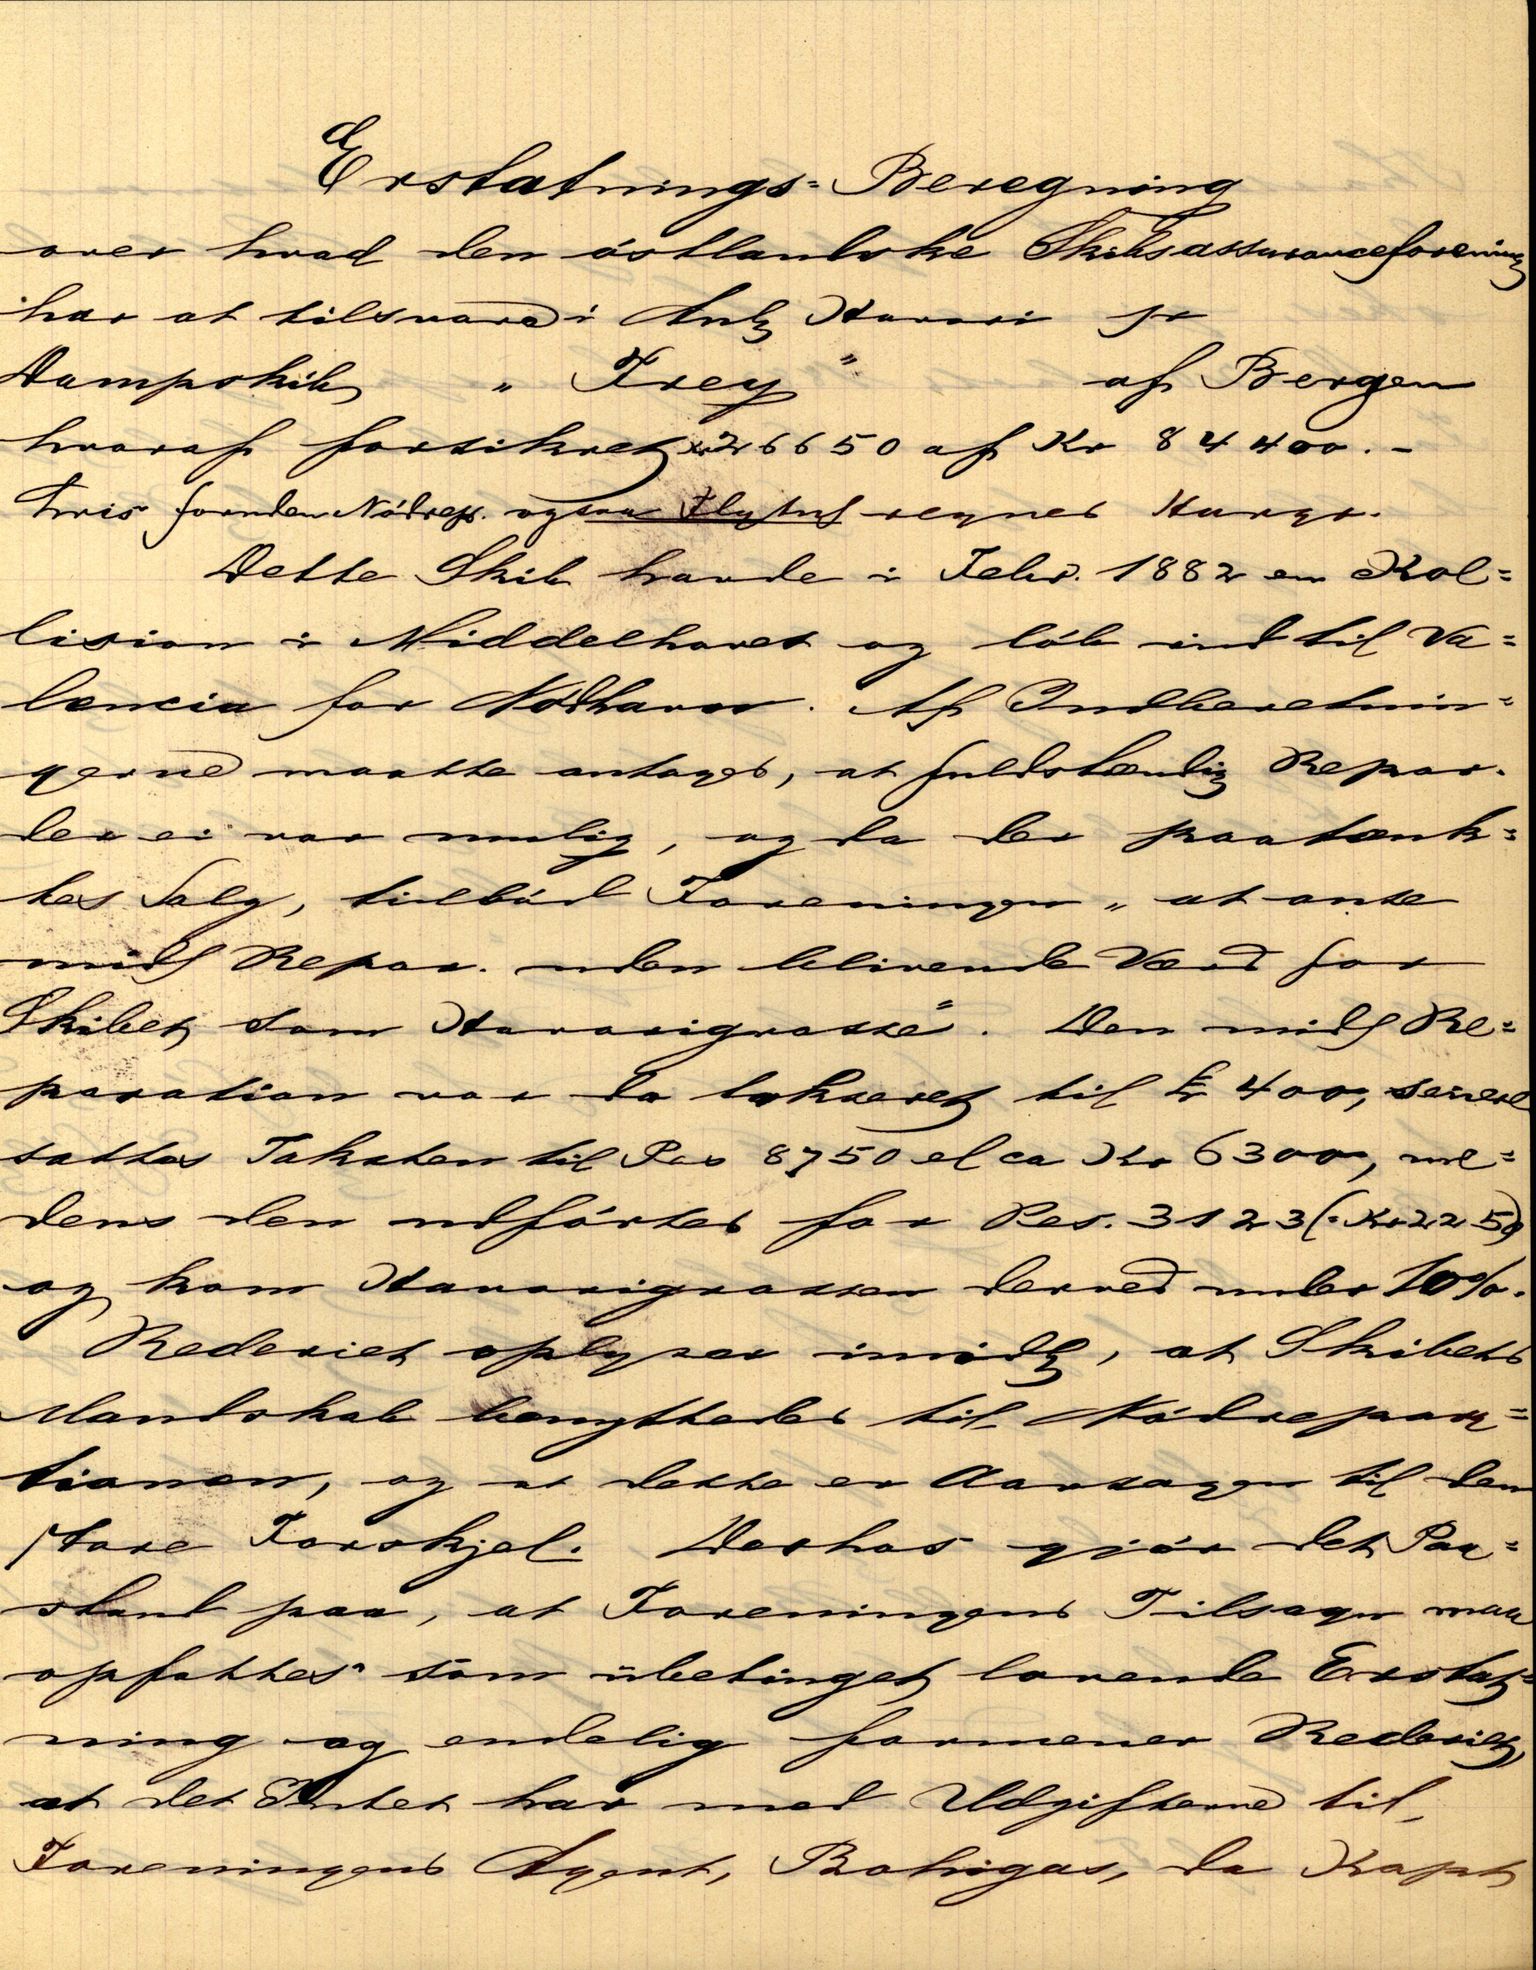 Erstatnings= Beregning
over hvad den östlandske Skibsassuranceforening
har at tilsvare i Anlg Havari pr
Dampskib „ Frey " af Bergen
hvoraf forsikret Kr 26650 af Kr 84400.-
hvis foruden Nödrep. ogsaa regnes Havgr.
Dette Skib havde i Febr. 1882 en Kol=
lision i Middelhavet og löb ind til Va=
lencia for Nödhavn. Af Indberetnin=
gerne maatte antages, at fuldstændig Repar.
der ei var mulig, og da der paatænk=
tes Salg, tilböd Foreningen „ at anse
midl Repar. uden blivende Værd for
Skibet som Havarigrosse". Den midl Re=
paration var da takseret til £ 400, senere
sattes Taksten til Pes 8750 el ca Kr 6300, me=
dens den udförtes for Pes. 3123 (: Kr 2250)
og kom Havarigrossen derved under 10%.
Rederiet oplyser imidl, at Skibets
Mandskab benyttedes til Nödrepara=
tionen, og at dette er Aarsagen til den
store Forskjel. Derhos gjör det Paa=
stand paa, at Foreningens Tilsagn maa
opfattes som ubetinget lovende Erstat=
ning og endelig formener Rederiet,
at det Intet har med Udgifterne til
Foreningens Agent, Bohigas, da Kapt